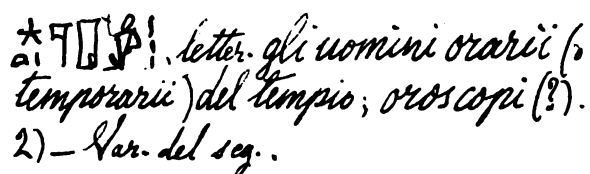 letter. gli uomini orarii (o
temporarii) del tempio; oroscopi (?).
2) — Var. del seg..